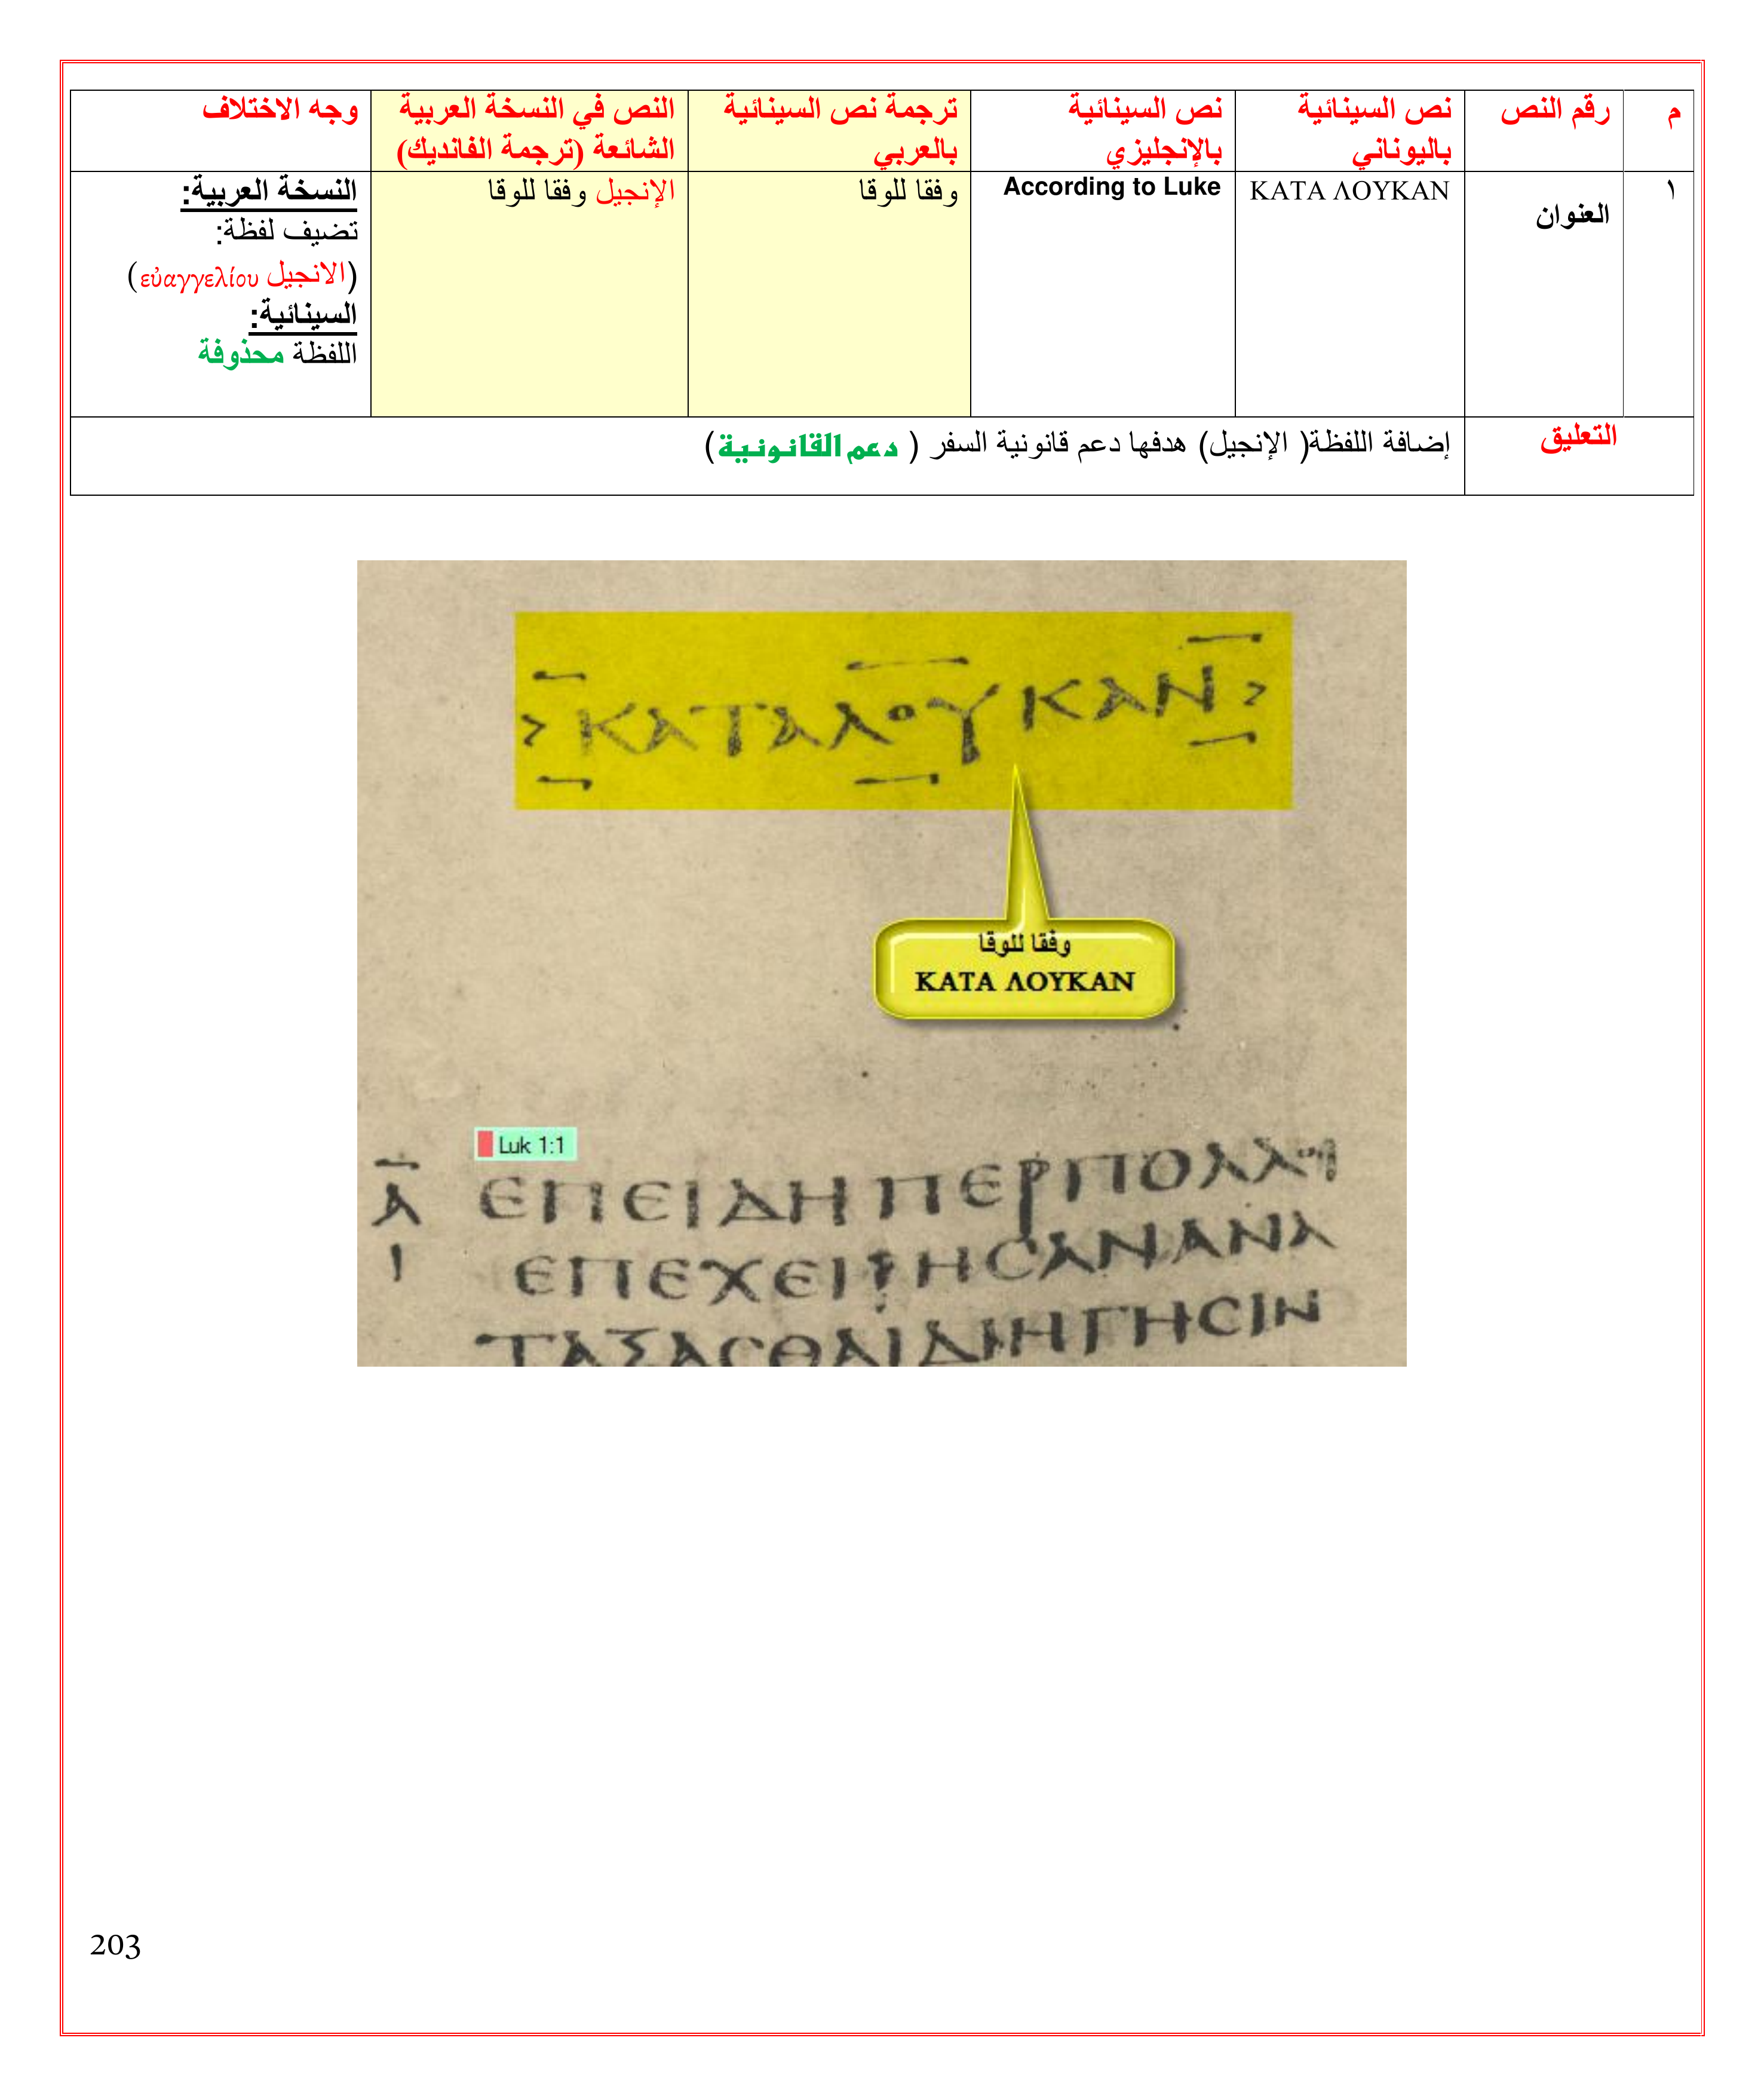 م
رقم النص
نص السينائية باليوناني
نص السينائية بالإنجليزي
ترجمة نص السينائية بالعربي
النص في النسخة العربية الشائعة (ترجمة الفانديك)
وجه الاختلاف
١
العنوان
ΚΑΤΑ ΛΟΥΚΑΝ
According to Luke
وفقا للوقا
الإنجيل وفقا للوقا
النسخة العربية:
تضيف لفظة:
(الانجيل εὐαγγελίου)
السينائية:
اللفظة محذوفة
التعليق
إضافة اللفظة( الإنجيل) هدفها دعم قانونية السفر ( دعم القانونية)
>ΚΑΤΑΛΟΥΚΑΝ>
وفقا للوقا
ΚΑΤΑ ΛΟΥΚΑΝ
Luk 1:1
Α ΕΠΕΙΔΗΠΕΡΠΟΛΛΟΙ
Ι ΕΠΕΧΕΙΡΗCΑΝΑΝΑ
ΤΑΞΑCΘΑΙΔΙΗΓΗCΙΝ
203